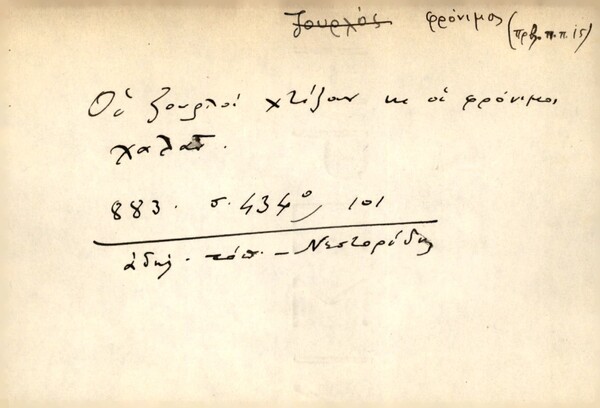 ζουρλός φρόνιμος (πρβ. π. π. ις)
Οὑ ζουρλοί χτίζουν κι οἱ φρόνιμοι
χαλᾶν.
883. σ. 434, 101
ἀδήλ. τόπ. – Νεστορίδης